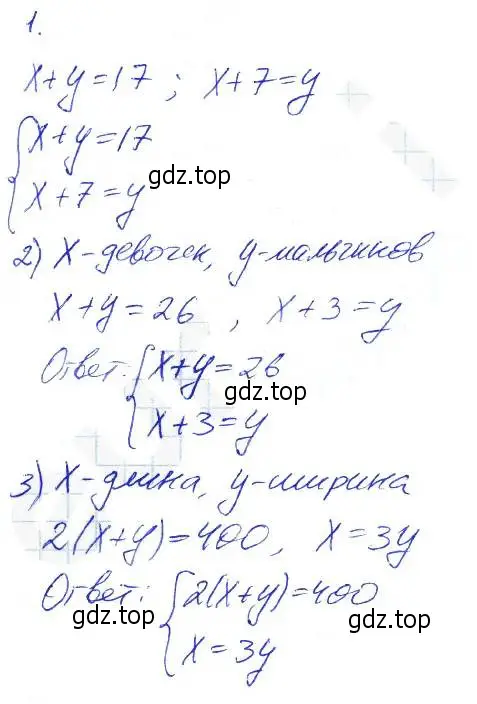 1.
x+y=17 ; x+7=y
{x+y=17
x+7=y gdz.top
2) x-девочек, y-мальчиков
x+y=26 , x+3=y
Ответ: {x+y=26
gdz.top
x+3=y
3) x-длина, y-ширина
2(x+y)=400, x=3y
Ответ: {2(x+y)=400
gdz.top
x=3y